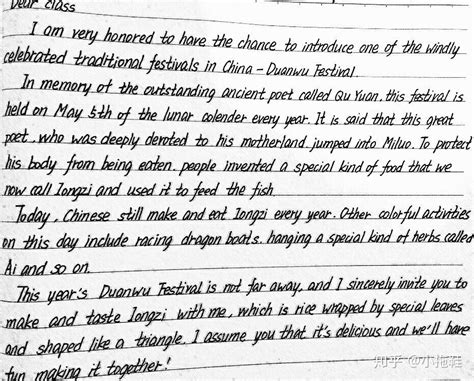 Dear class
I am very honored to have the chance to introduce one of the windly
celebrated traditional festivals in China - Duanwu Festival.
In memory of the outstanding ancient poet called Qu Yuan, this festival is
held on May 5th of the lunar colender every year. It is said that this great
poet, who was deeply devoted to his motherland, jumped into Miluo. To protect
his body from being eaten, people invented a special kind of food that we
now call Iongzi and used it to feed the fish.
Today, Chinese still make and eat Iongzi every year. Other colorful activities
on this day include racing dragon boats, hanging a special kind of herbs called
Ai and so on.
This year's Duanwu Festival is not far away, and I sincerely invite you to
make and taste Iongzi with me, which is rice wrapped by special leaves
and shaped like a triangle. I assume you that it's delicious and we'll have
fun making it together!
知乎 @小拖鞋